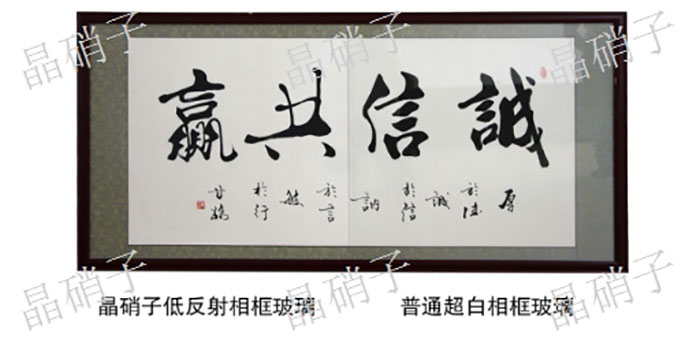 晶硝子 晶硝子 晶硝子
誠信共贏
厚於德誠於信訥於言敏於行
晶硝子 晶硝子 晶硝子
晶硝子低反射相框玻璃
普通超白相框玻璃